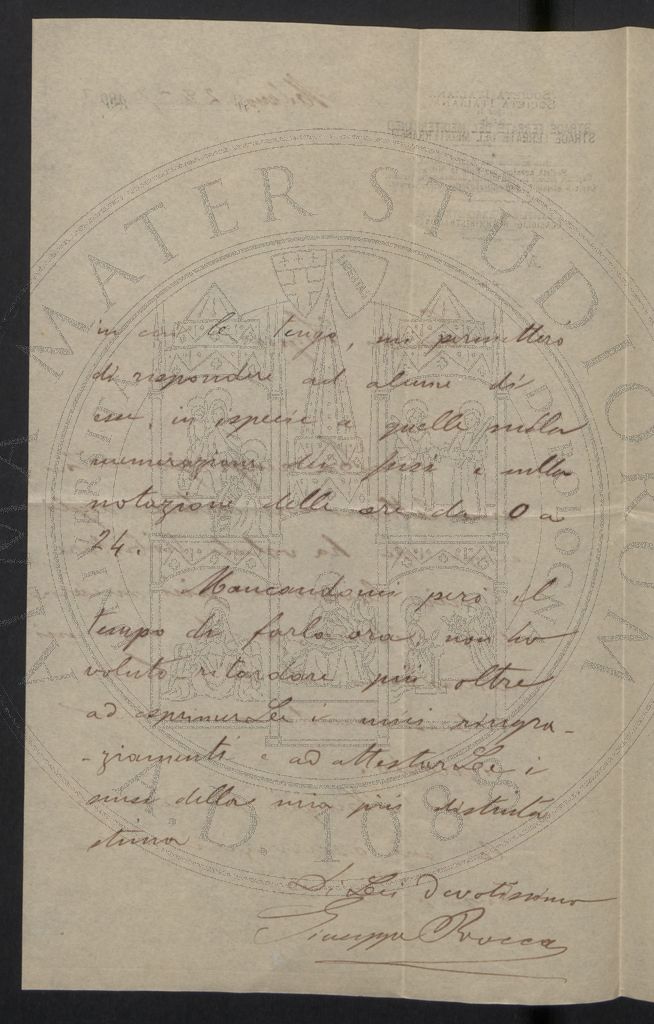 in cui le tengo, mi permetterò
di rispondere ad alcune di
esse, in ispecie a quelle sulla
numerazione dei fusi e sulla
notazione delle ore da 0 a
24.
Mancandomi però il
tempo di farlo ora, non ho
voluto ritardare più oltre
ad esprimerLe i miei ringra-
-ziamenti e ad attestarLe i
sensi della mia più distinta
stima
Di Lei Devotissimo
Giuseppe Rocca
ALMA MATER STUDIORUM
A.D. 1088